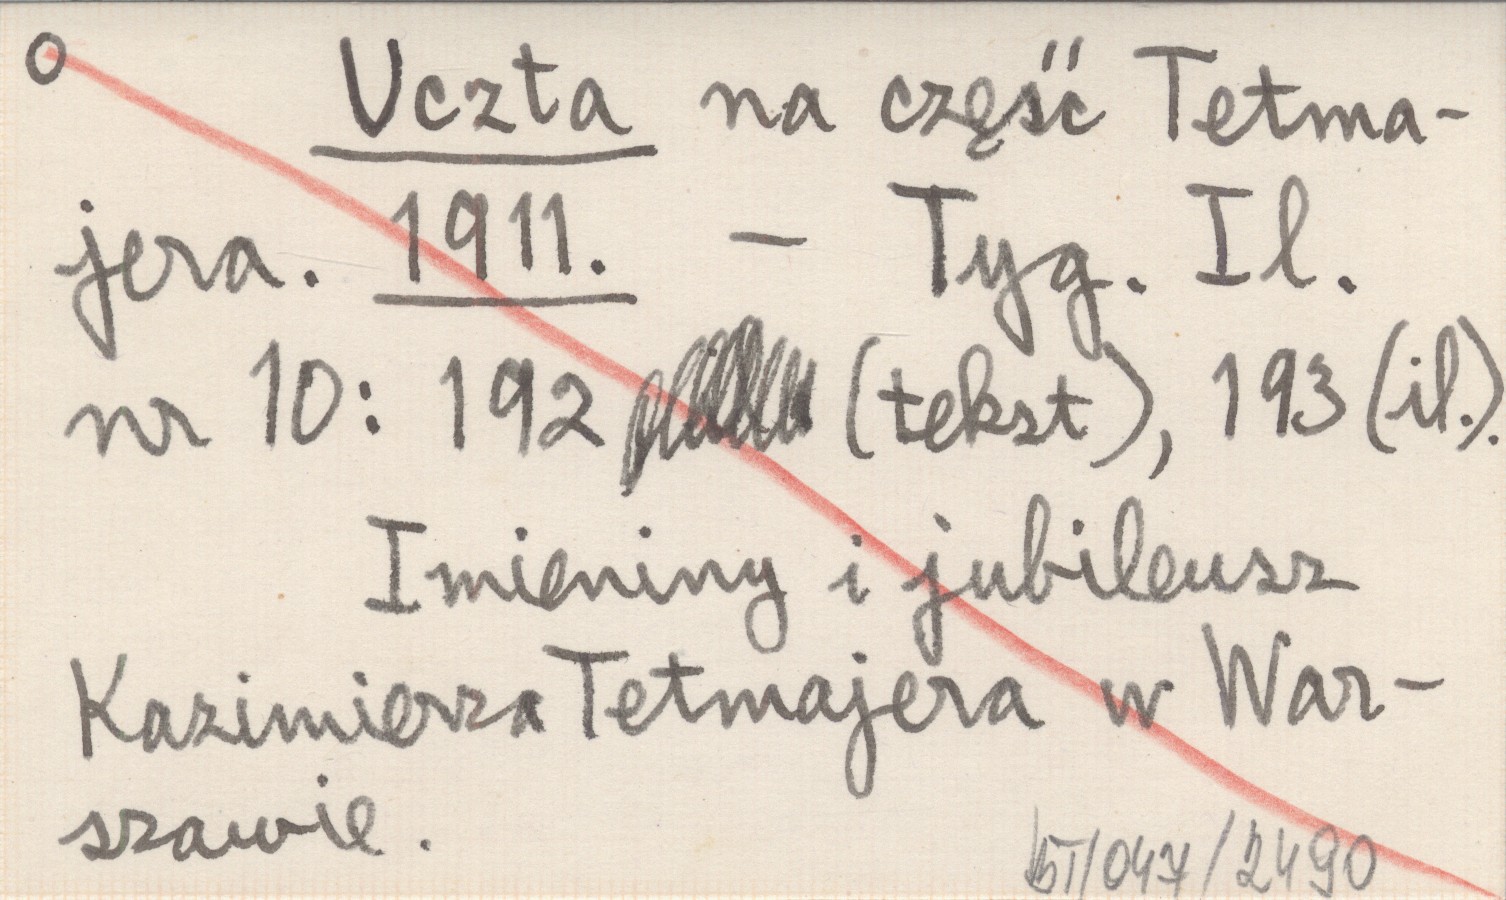 O Uczta na cześć Tetma-
jera. 1911. – Tyg. Il.
nr 10: 192 (tekst), 193 (il.).
Imieniny i jubileusz
Kazimierza Tetmajera w War-
szawie.
/047/2490